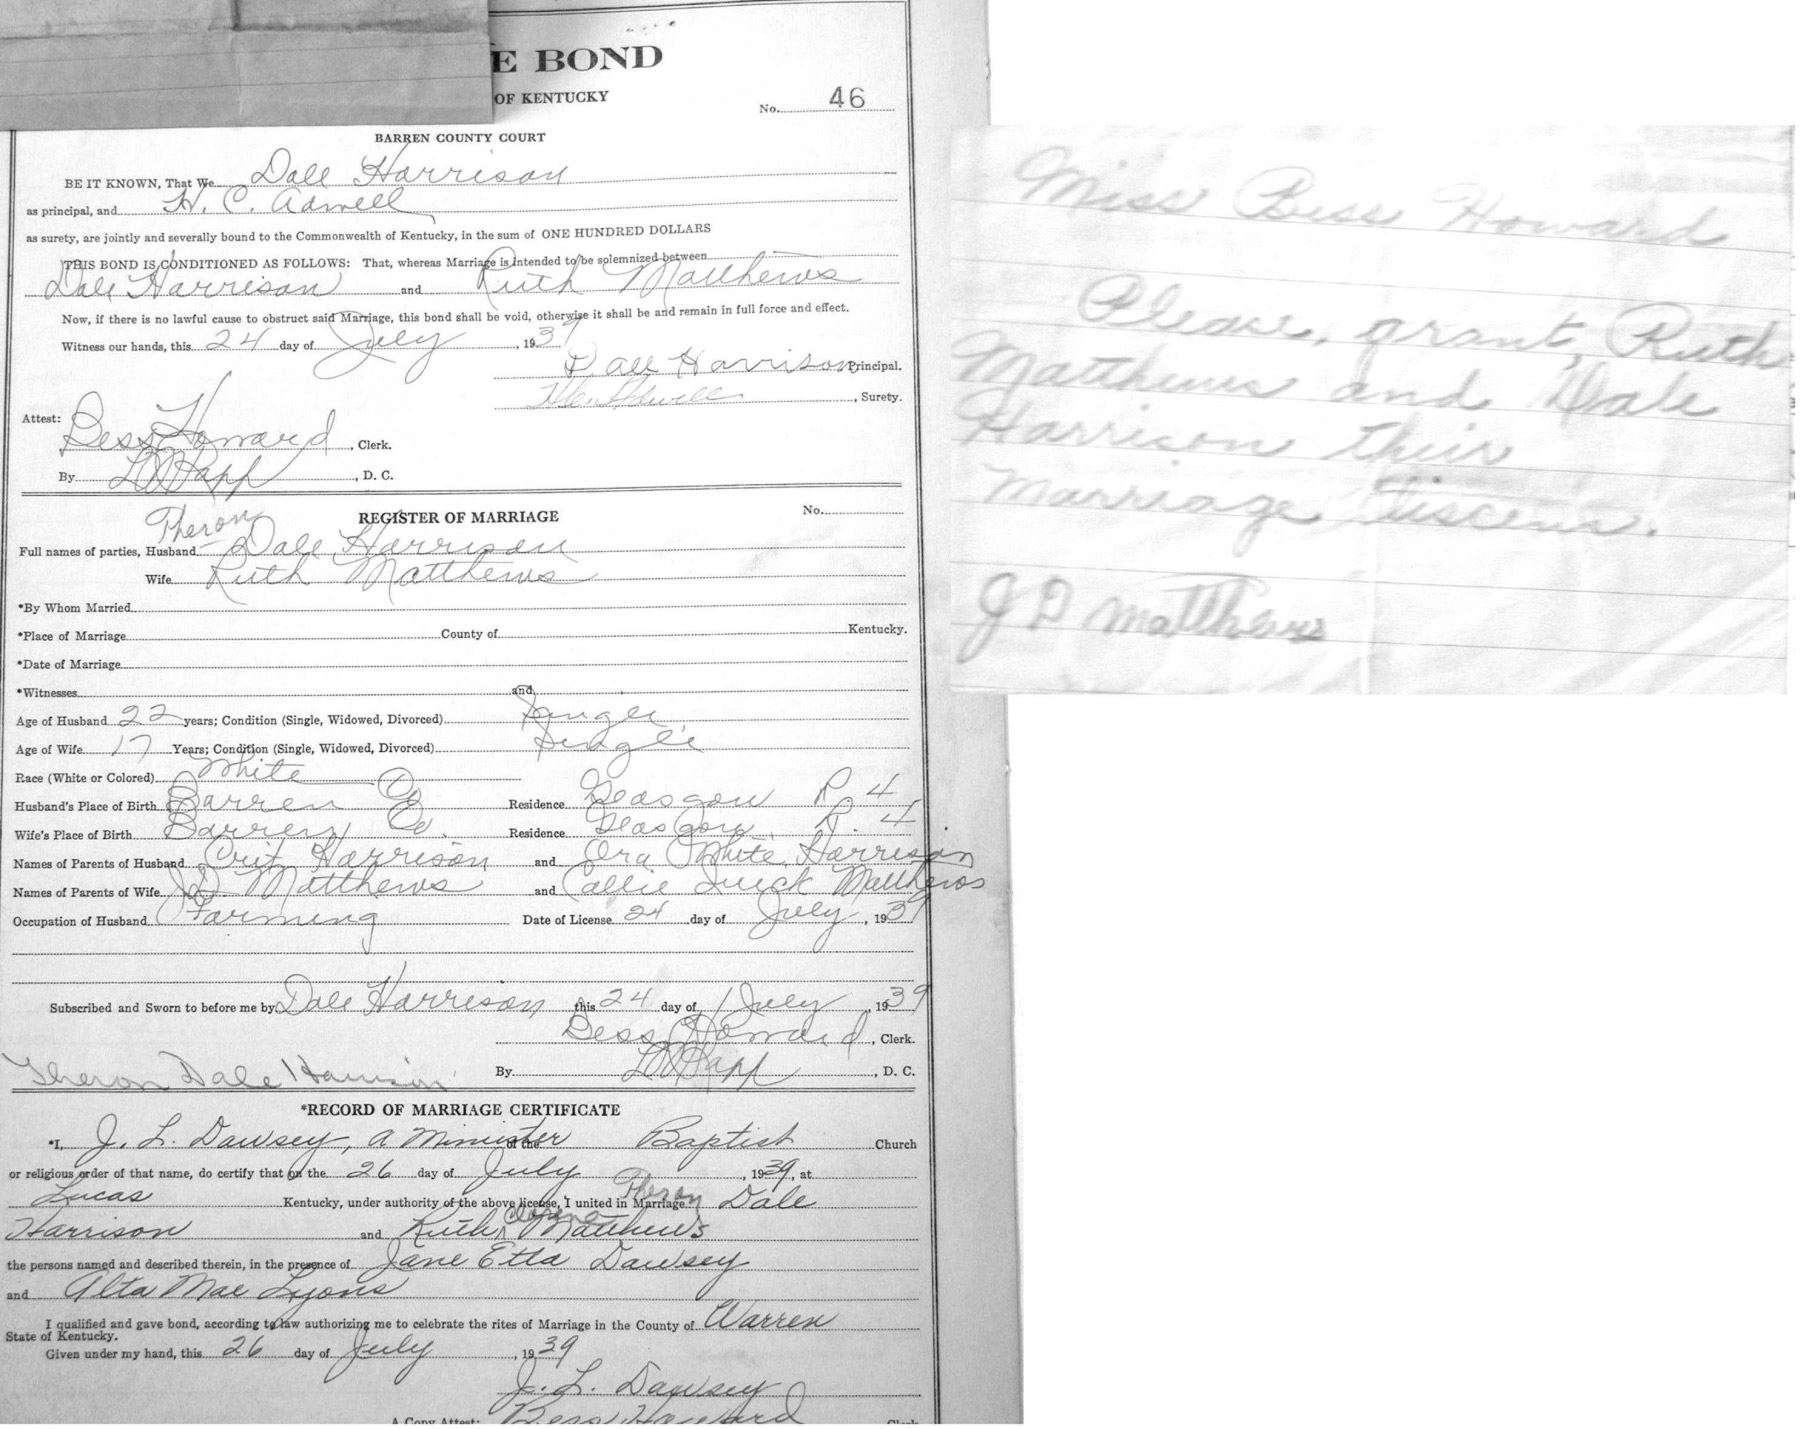 E BOND
OF KENTUCKY
No. 46
BARREN COUNTY COURT
BE IT KNOWN, That We Dale Harrison
as principal, and H. C. Adwell
as surety, are jointly and severally bound to the Commonwealth of Kentucky, in the sum of ONE HUNDRED DOLLARS
THIS BOND IS CONDITIONED AS FOLLOWS: That, whereas Marriage is intended to be solemnized between
Dale Harrison and Ruth Matthews
Now, if there is no lawful cause to obstruct said Marriage, this bond shall be void, otherwise it shall be and remain in full force and effect.
Witness our hands, this 24 day of July, 1939
Dale Harrison Principal.
H.C. Adwell, Surety.
Attest:
Bess Howard, Clerk.
By Rapp, D. C.
REGISTER OF MARRIAGE No.
Theron
Full names of parties, Husband Dale Harrison
Wife Ruth Matthews
*By Whom Married
*Place of Marriage County of Kentucky.
*Date of Marriage
*Witnesses and
Age of Husband 22 years; Condition (Single, Widowed, Divorced) Single
Age of Wife 17 Years; Condition (Single, Widowed, Divorced) Single
Race (White or Colored) White
Husband's Place of Birth Barren Co Residence Glasgow R 4
Wife's Place of Birth Barren Co. Residence Glasgow R. 4
Names of Parents of Husband Crit Harrison and Ora White Harrison
Names of Parents of Wife J D Matthews and Callie Quick Matthews
Occupation of Husband Farming Date of License 24 day of July, 1939
Subscribed and Sworn to before me by Dale Harrison this 24 day of July, 1939
Bess Howard, Clerk.
Theron Dale Harrison By Rapp, D. C.
*RECORD OF MARRIAGE CERTIFICATE
*I, J. L. Dawsey, a Minister of the Baptist Church
or religious order of that name, do certify that on the 26 day of July, 1939, at
Lucas Kentucky, under authority of the above license, I united in Marriage Theron Dale
Harrison and Ruth Matthews
the persons named and described therein, in the presence of Jane Etta Dawsey
and Alta Mae Lyons
I qualified and gave bond, according to law authorizing me to celebrate the rites of Marriage in the County of Warren
State of Kentucky.
Given under my hand, this 26 day of July, 1939
J. L. Dawsey
A Copy Attest: Bess Howard Clerk
Miss Bess Howard
Please, grant, Ruth
Matthews and Dale
Harrison their
Marriage liscens.
J D Matthews